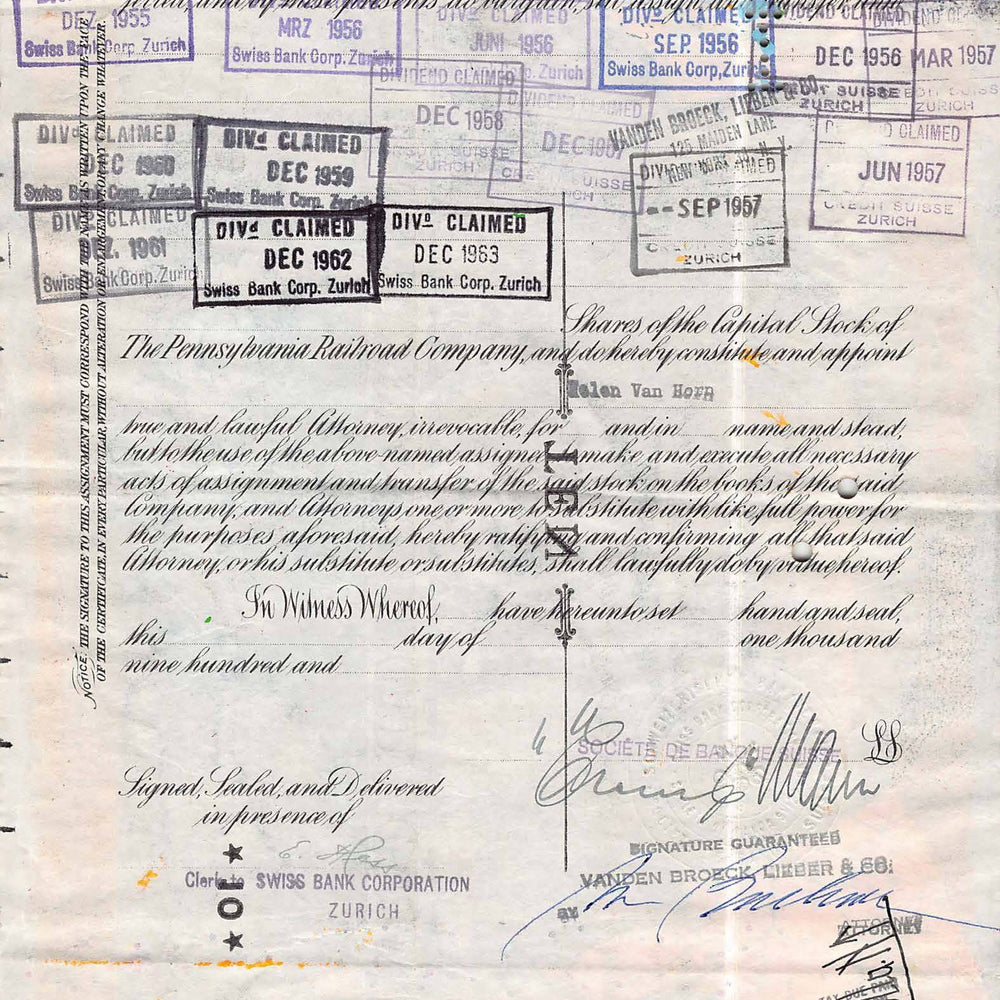 DEZ. 1955
Swiss Bank Corp. Zurich
MRZ 1956
Swiss Bank Corp. Zurich
DIVd CLAIMED
JUNI 1956
Zurich
DIVd CLAIMED
SEP. 1956
Swiss Bank Corp, Zurich
DIVIDEND CLAIMED
DEC 1956
CREDIT SUISSE
ZURICH
DIVIDEND
MAR 1957
CREDIT SUISSE
ZURICH
DIVIDEND CLAIMED
DEC 1958
CREDIT SUISSE
ZURICH
DIVIDEND CLAIMED
DEC 1957
SUISSE
VANDEN BROECK, LIEBER & CO
125 MAIDEN LANE
NEW YORK
DIVIDEND CLAIMED
SEP 1957
CREDIT SUISSE
ZURICH
CLAIMED
JUN 1957
CREDIT SUISSE
ZURICH
DIVd CLAIMED
DEC 1960
Swiss Bank Corp. Zurich
DIVd CLAIMED
DEC 1959
Swiss Bank Corp. Zurich
DIVd CLAIMED
DEZ. 1961
Swiss Bank Corp. Zurich
DIVd CLAIMED
DEC 1962
Swiss Bank Corp. Zurich
DIVD CLAIMED
DEC 1963
Swiss Bank Corp. Zurich
NOTICE: THE SIGNATURE TO THIS ASSIGNMENT MUST CORRESPOND WITH THE NAME AS WRITTEN UPON THE FACE
OF THE CERTIFICATE, IN EVERY PARTICULAR, WITHOUT ALTERATION OR ENLARGEMENT OR ANY CHANGE WHATEVER.
Shares of the Capital Stock of
The Pennsylvania Railroad Company, and do hereby constitute and appoint
Helen Van Horn
true and lawful Attorney, irrevocable, for and in name and stead,
but to the use of the above-named assignee to make and execute all necessary
acts of assignment and transfer of the said stock on the books of the said
Company, and Attorneys one or more to substitute with like full power for
the purposes aforesaid, hereby ratifying and confirming all that said
Attorney, or his substitute or substitutes, shall lawfully do by virtue hereof.
TEN
In Witness Whereof, have hereunto set hand and seal,
this day of one thousand
nine hundred and
SOCIÉTÉ DE BANQUE SUISSE
LS
Signed, Sealed, and Delivered
in presence of
Clerk to SWISS BANK CORPORATION
ZURICH
★ 10 ★
SIGNATURE GUARANTEED
VANDEN BROECK, LIEBER & CO.
BY
ATTORNEY
TAX DUE PAID